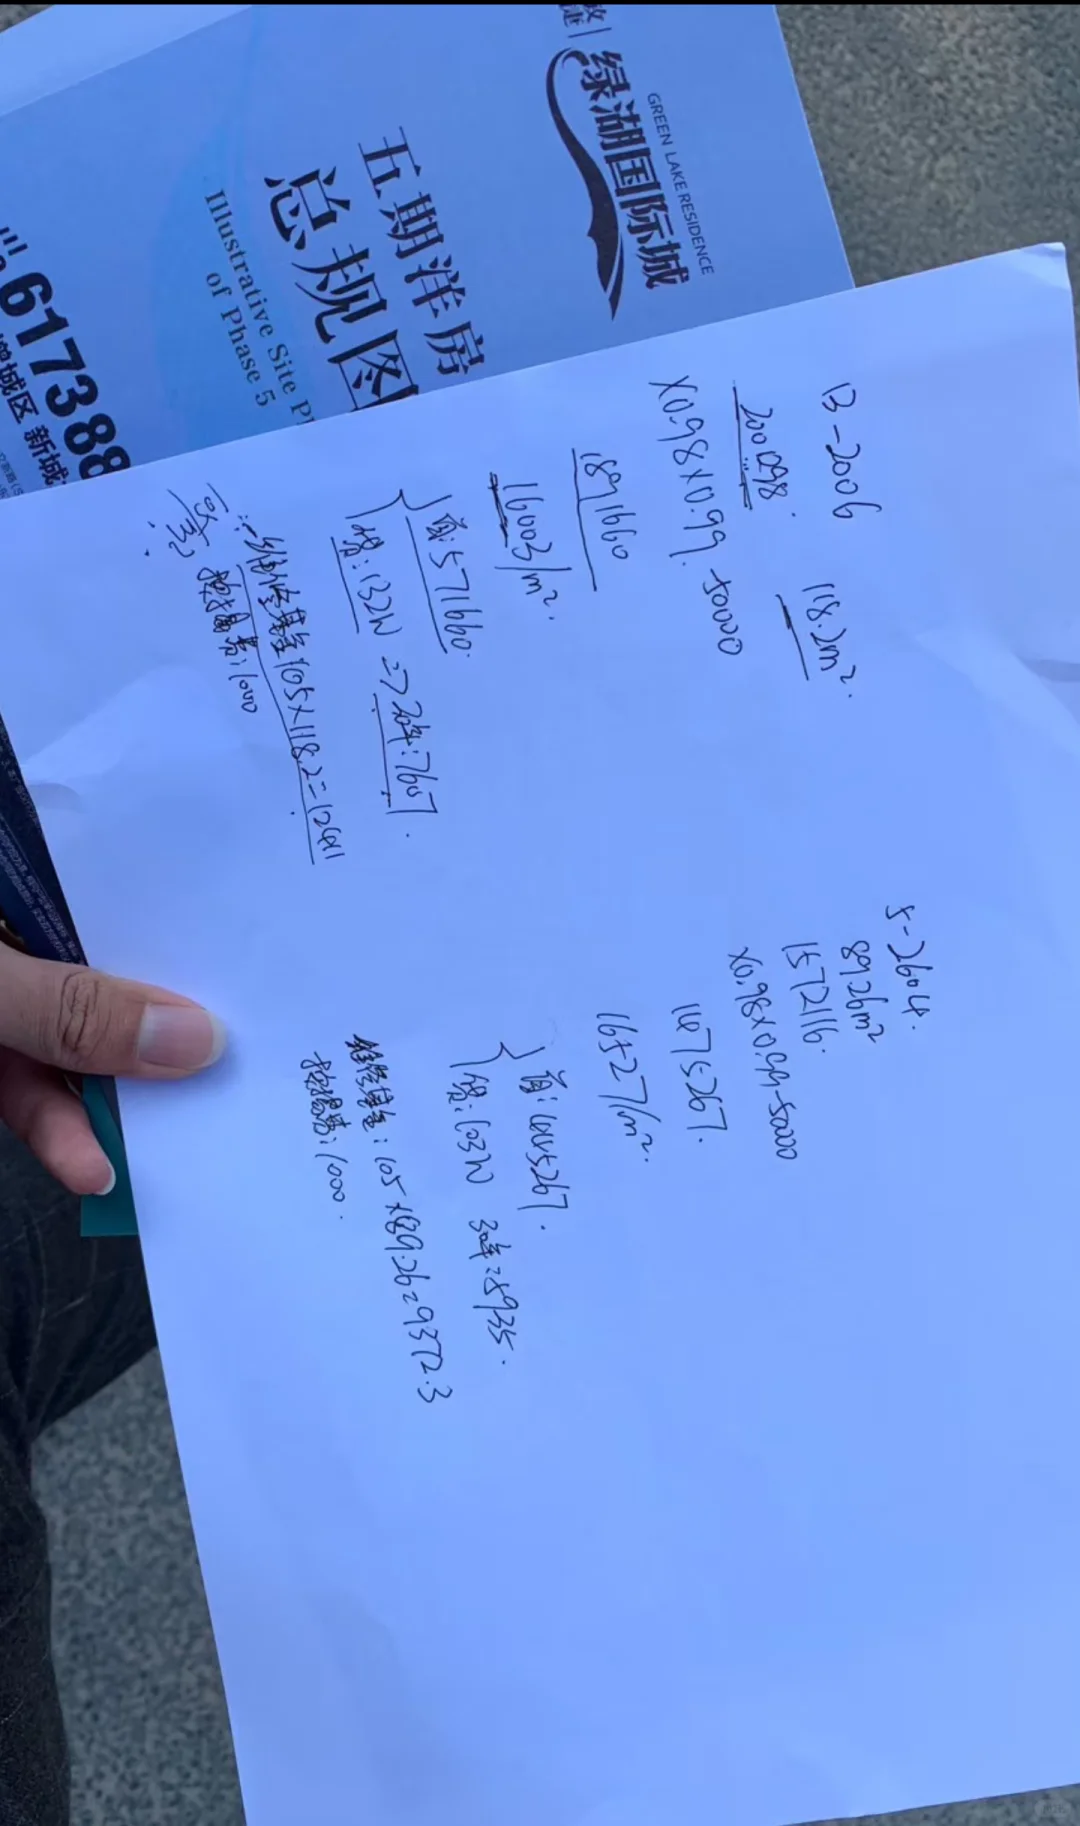 绿湖国际城
GREEN LAKE RESIDENCE
五期洋房
总规图
Illustrative Site
of Phase 5
617388
城区 新城
13-2006
118.2m².
2001298.
×0.98×0.99.-50000
1891660
16003/m².
首:571660.
贷:132W => 30年:7607.
维修基金105×118.2=12411
按揭费:1000
5-2604.
89.26m²
1572116.
×0.98×0.99-50000
1475267.
16527/m².
首:445267.
贷:103W 30年=5935.
维修基金:105×89.26=9372.3
按揭费:1000.